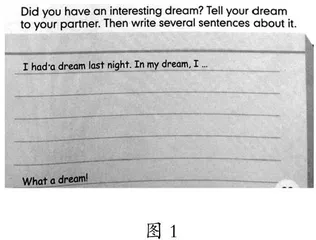 Did you have an interesting dream? Tell your dream
to your partner. Then write several sentences about it.
I had a dream last night. In my dream, I ...
What a dream!
图 1